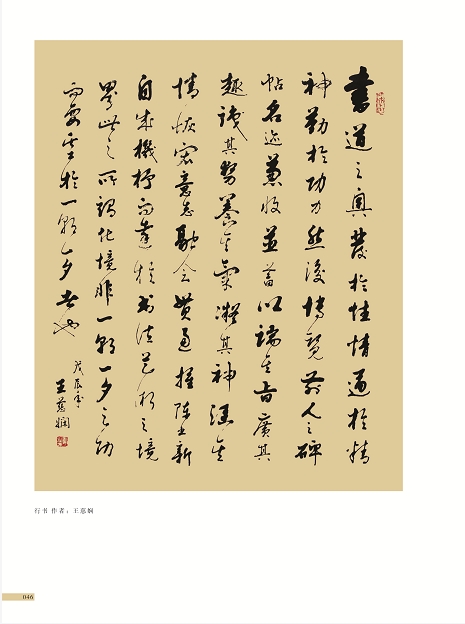 書道之奧發於性情通於精
神勤於功力然後博覽前人之碑
帖名迹兼收並蓄以端其旨廣其
趣識其勢養其氣凝其神涵其
情恢宏意志融会貫通推陈出新
自成機杼而達於书法艺术之境
界此之所謂化境非一朝一夕之功
而於一朝一夕者也
戊辰年
王蕙娴
行书 作者：王惠娴
046